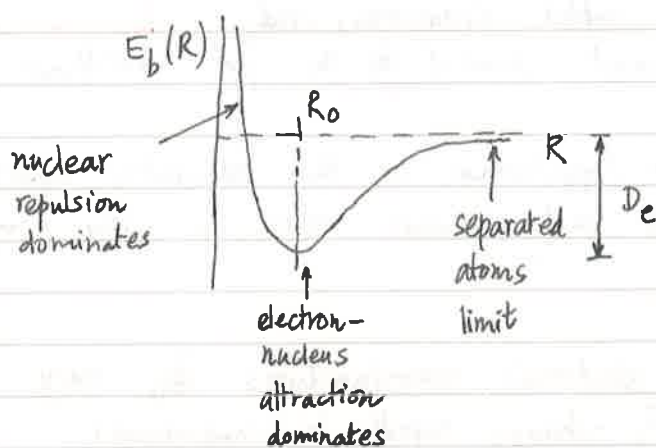 E_b(R)
R_0
nuclear
repulsion
dominates
R
D_e
separated
atoms
limit
electron-
nucleus
attraction
dominates